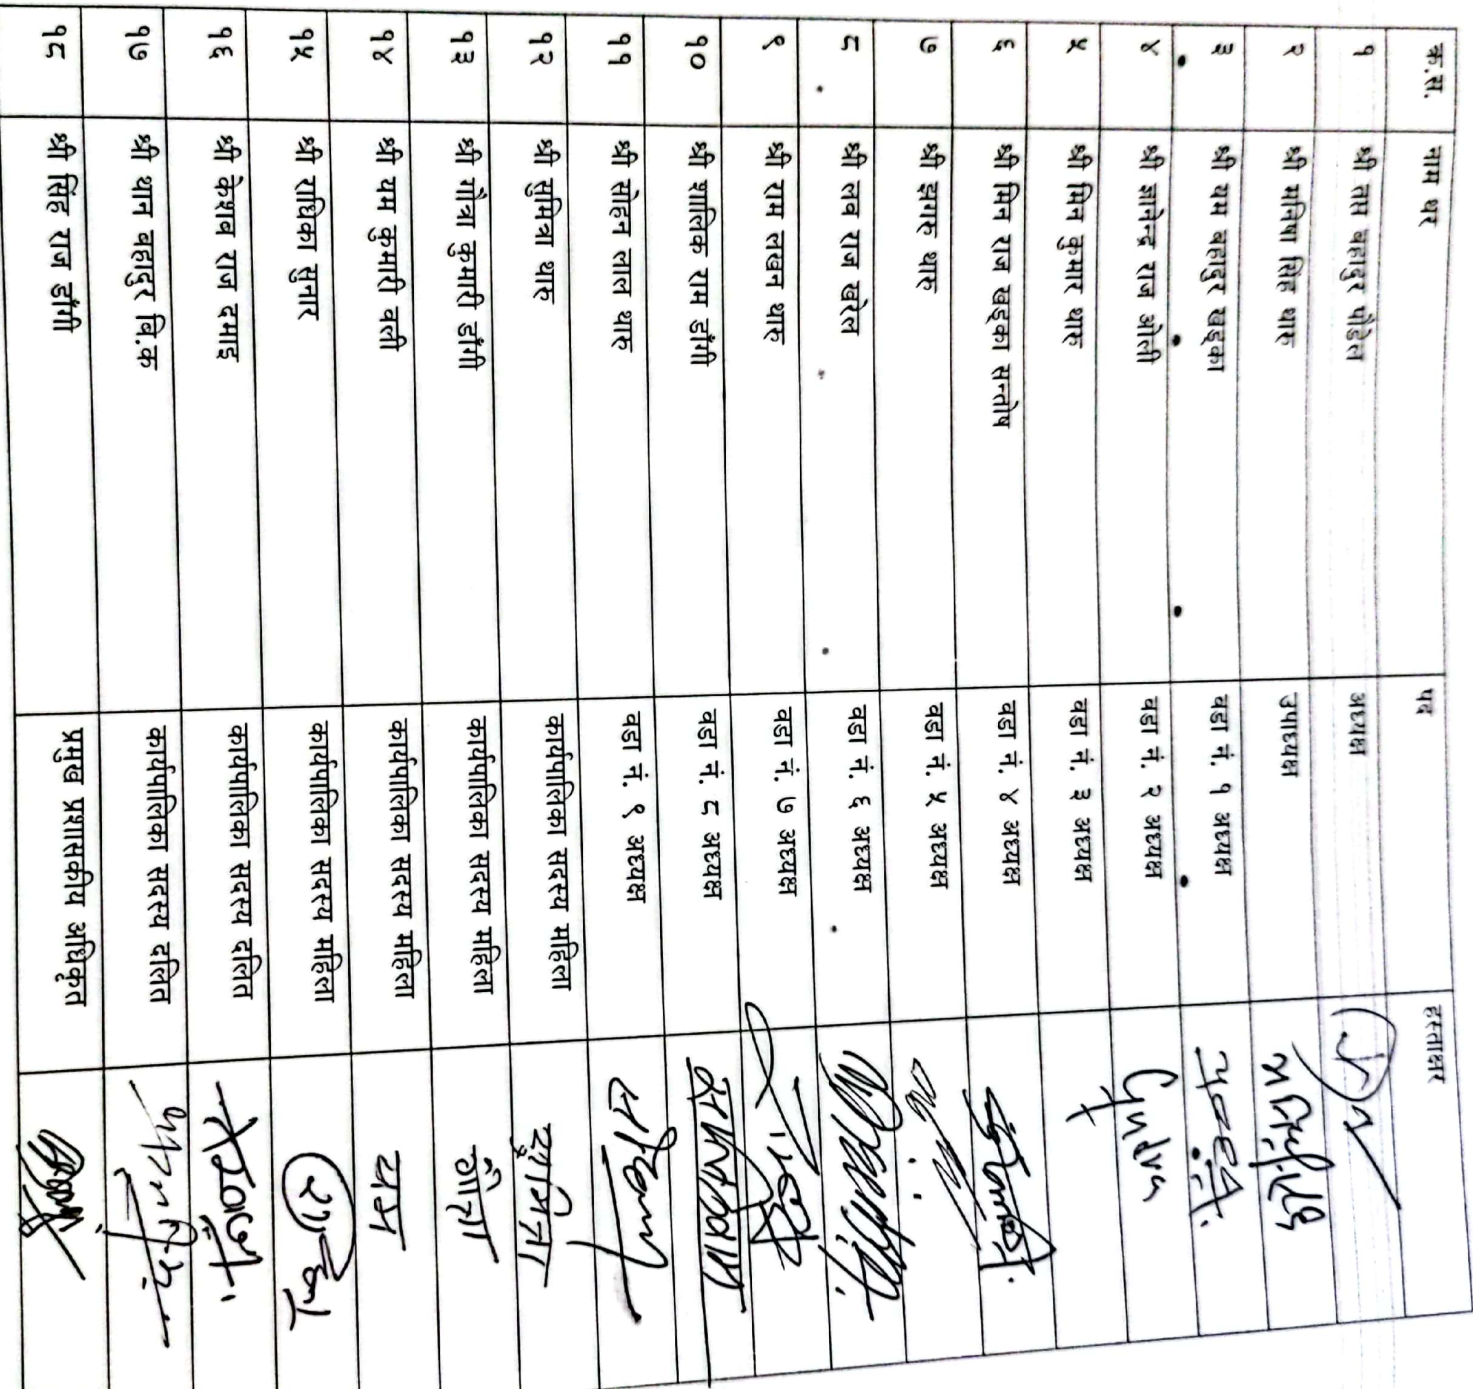 क्र.स. नाम थर पद हस्ताक्षर
१ श्री तम बहादुर पौडेल अध्यक्ष
२ श्री मनिषा सिंह थारु उपाध्यक्ष
३ श्री यम बहादुर खड्का वडा नं. १ अध्यक्ष
४ श्री ज्ञानेन्द्र राज ओली वडा नं. २ अध्यक्ष
५ श्री मिन कुमार थारु वडा नं. ३ अध्यक्ष
६ श्री मिन राज खड्का सन्तोष वडा नं. ४ अध्यक्ष
७ श्री झगरु थारु वडा नं. ५ अध्यक्ष
८ श्री लव राज खरेल वडा नं. ६ अध्यक्ष
९ श्री राम लखन थारु वडा नं. ७ अध्यक्ष
१० श्री शालिक राम डाँगी वडा नं. ८ अध्यक्ष
११ श्री सोहन लाल थारु वडा नं. ९ अध्यक्ष
१२ श्री सुमित्रा थारु कार्यपालिका सदस्य महिला सुमित्रा
१३ श्री गौत्रा कुमारी डाँगी कार्यपालिका सदस्य महिला गौत्रा
१४ श्री यम कुमारी वली कार्यपालिका सदस्य महिला यम
१५ श्री राधिका सुनार कार्यपालिका सदस्य महिला
१६ श्री केशव राज दमाइ कार्यपालिका सदस्य दलित
१७ श्री थान बहादुर वि.क कार्यपालिका सदस्य दलित
१८ श्री सिंह राज डाँगी प्रमुख प्रशासकीय अधिकृत